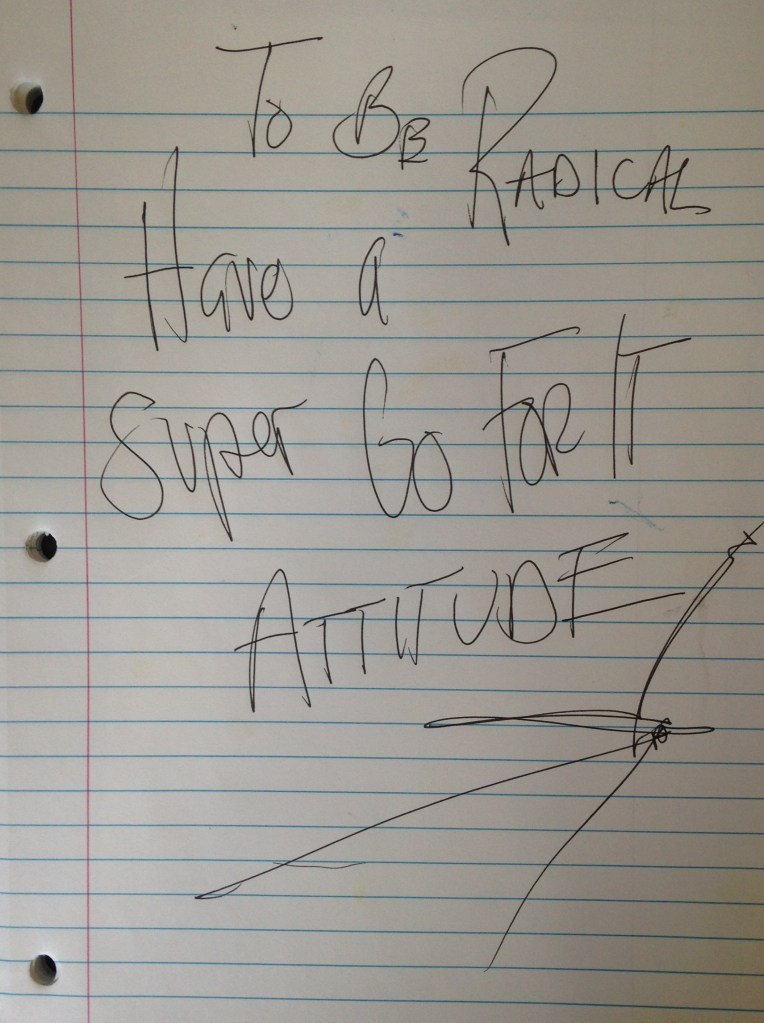 To BE RADICAL
Have a
Super Go FOR IT
ATTITUDE